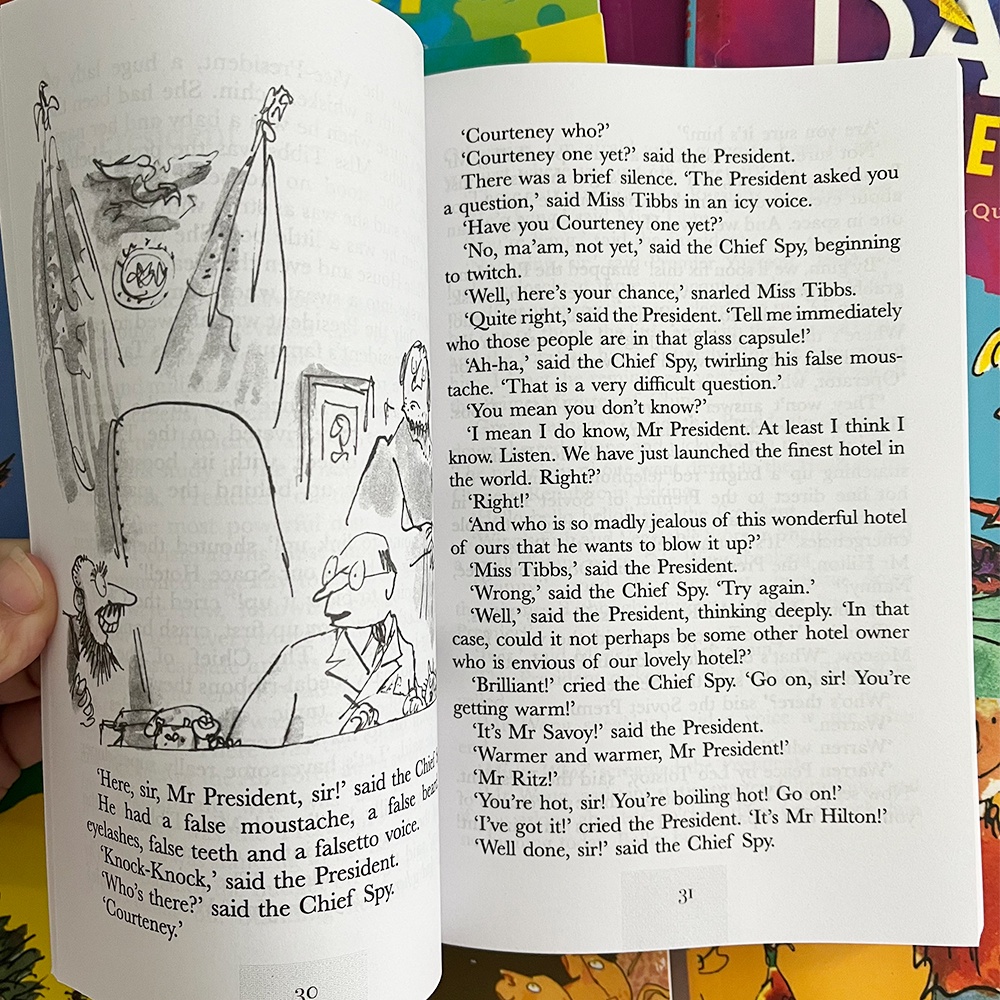 'Here, sir, Mr President, sir!' said the Chief
He had a false moustache, a false
eyelashes, false teeth and a falsetto voice.
'Knock-Knock,' said the President.
'Who's there?' said the Chief Spy.
'Courteney.'
30
'Courteney who?'
'Courteney one yet?' said the President.
There was a brief silence. 'The President asked you
a question,' said Miss Tibbs in an icy voice.
'Have you Courteney one yet?'
'No, ma'am, not yet,' said the Chief Spy, beginning
to twitch.
'Well, here's your chance,' snarled Miss Tibbs.
'Quite right,' said the President. 'Tell me immediately
who those people are in that glass capsule!'
'Ah-ha,' said the Chief Spy, twirling his false mous-
tache. 'That is a very difficult question.'
'You mean you don't know?'
'I mean I do know, Mr President. At least I think I
know. Listen. We have just launched the finest hotel in
the world. Right?'
'Right!'
'And who is so madly jealous of this wonderful hotel
of ours that he wants to blow it up?'
'Miss Tibbs,' said the President.
'Wrong,' said the Chief Spy. 'Try again.'
'Well,' said the President, thinking deeply. 'In that
case, could it not perhaps be some other hotel owner
who is envious of our lovely hotel?'
'Brilliant!' cried the Chief Spy. 'Go on, sir! You're
getting warm!'
'It's Mr Savoy!' said the President.
'Warmer and warmer, Mr President!'
'Mr Ritz!'
'You're hot, sir! You're boiling hot! Go on!'
'I've got it!' cried the President. 'It's Mr Hilton!'
'Well done, sir!' said the Chief Spy.
31
DA
E
Qu